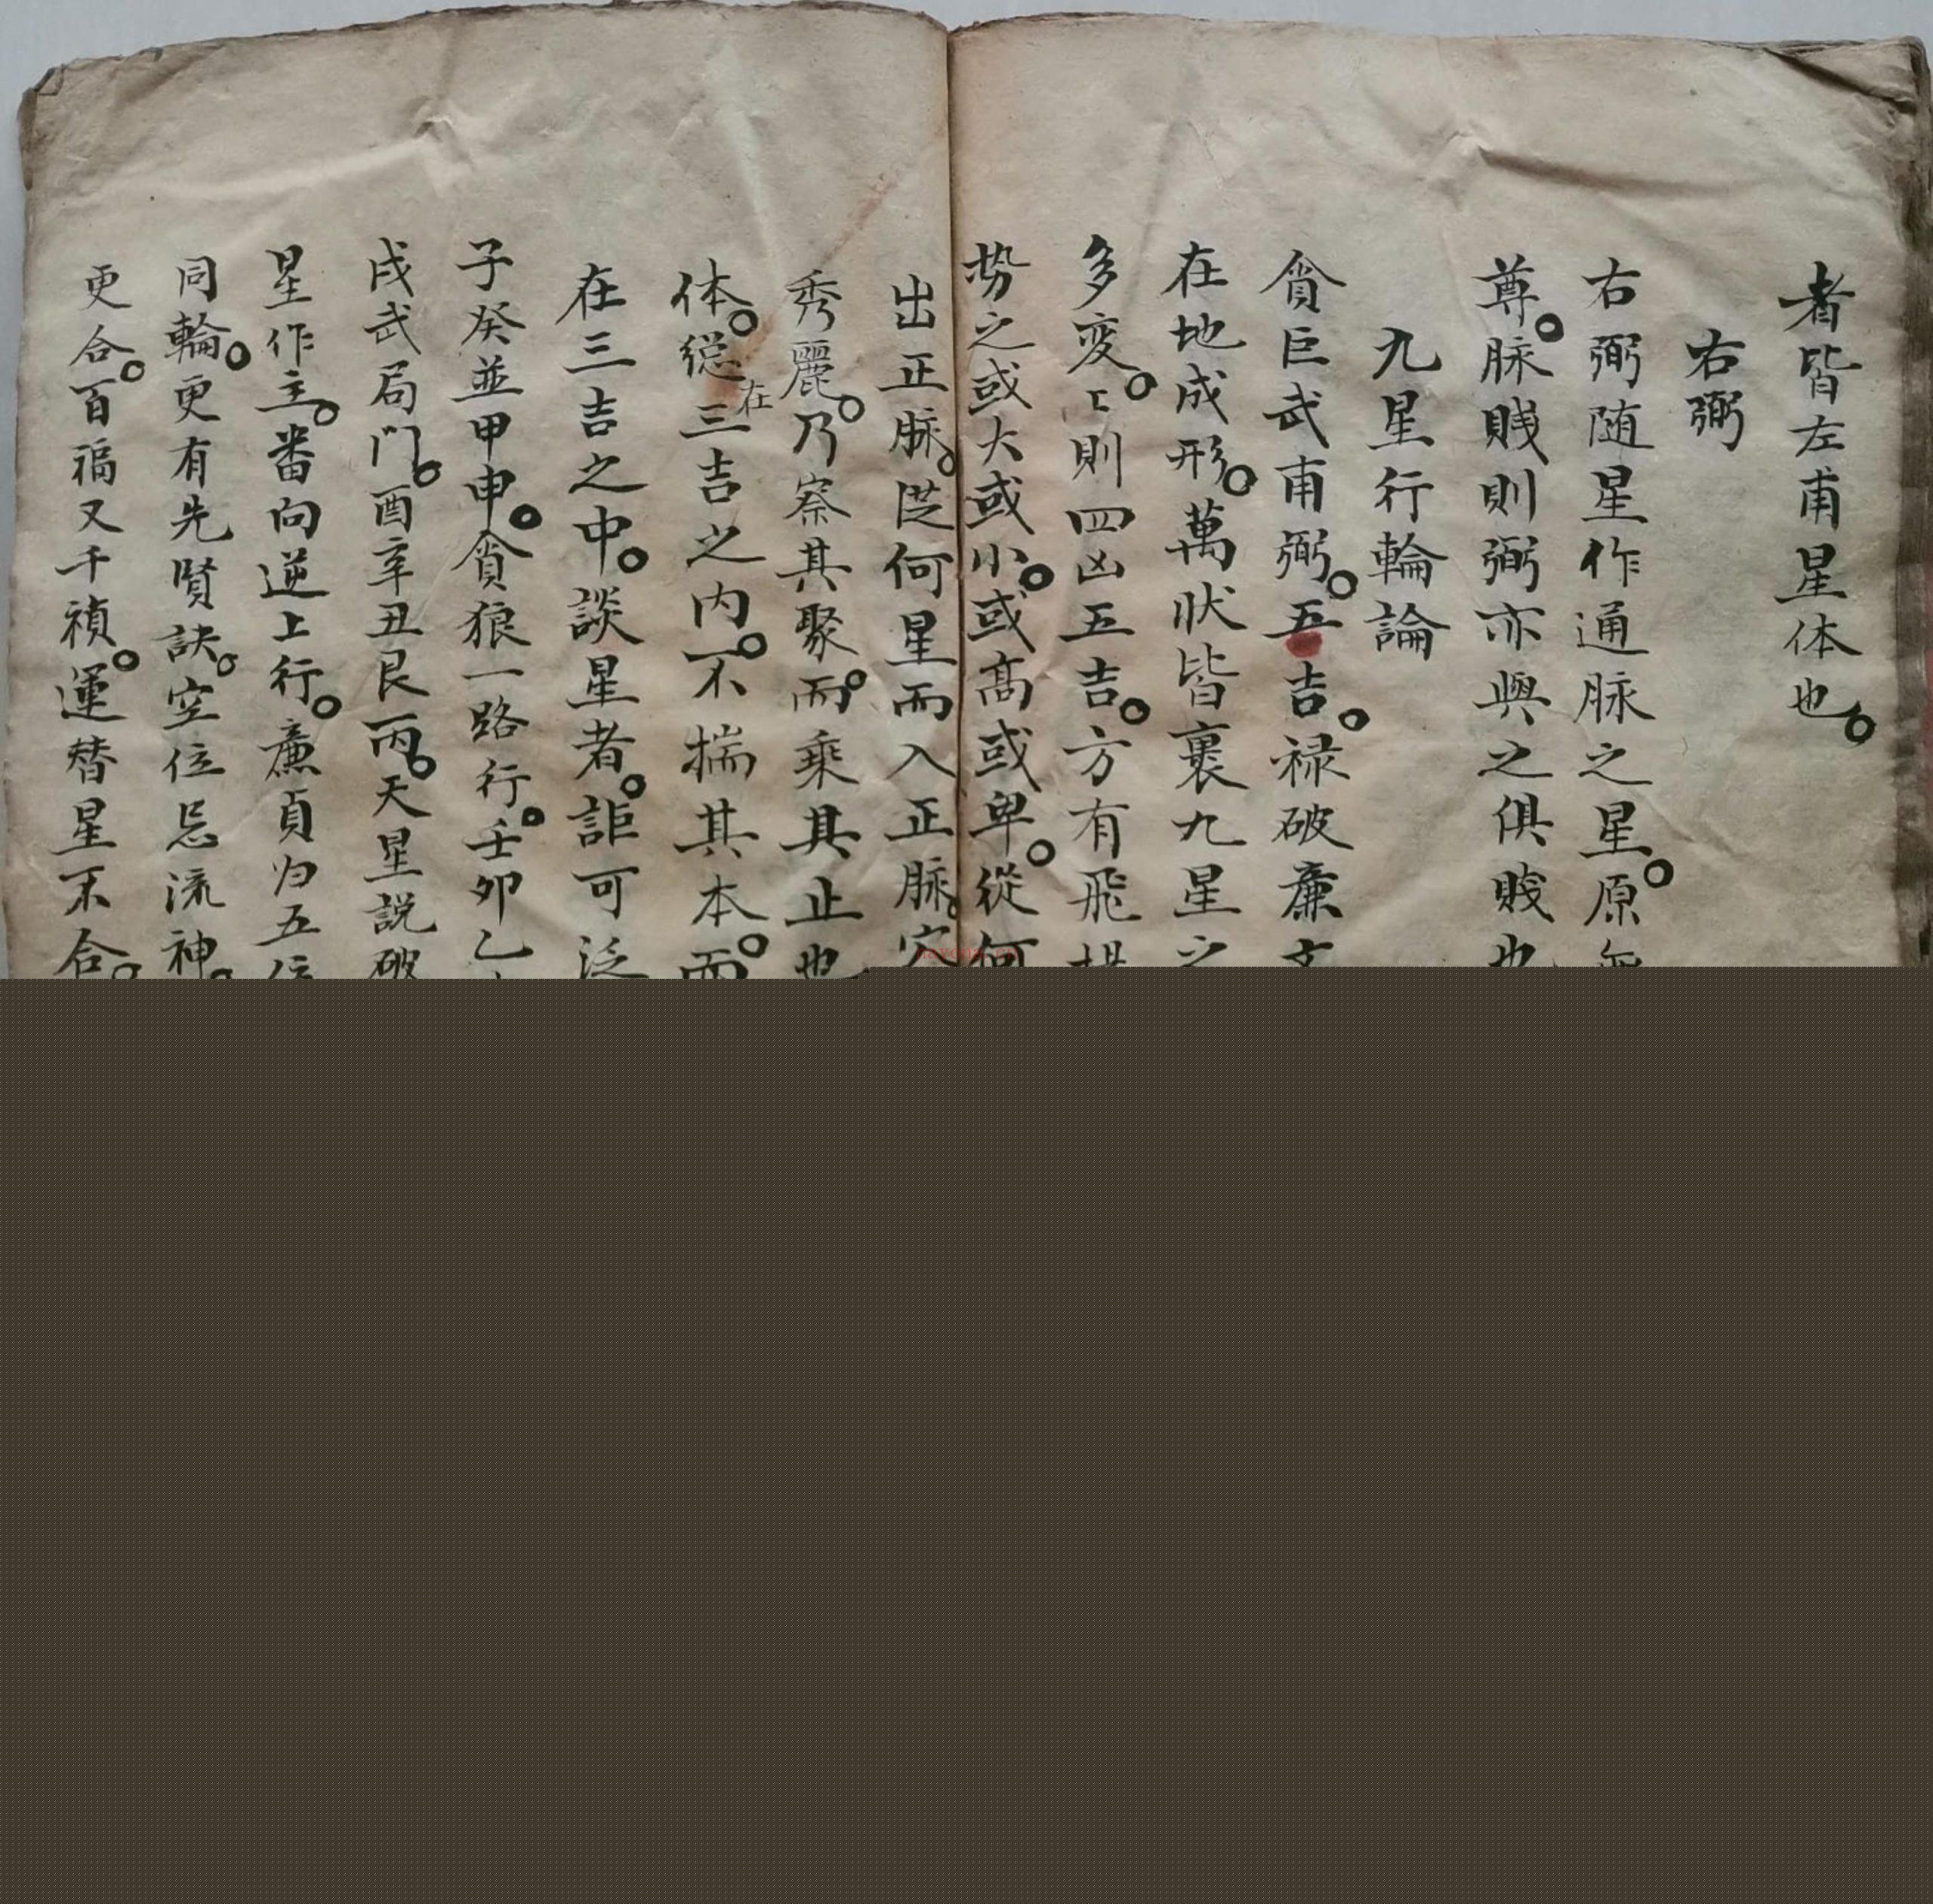 者皆左甫星体也。
右弼
右弼随星作通脉之星。原
尊。脉賎則弼亦與之俱賎也
九星行輪論
貪巨武甫弼。五吉。禄破廉文
在地成形。萬狀皆裏九星之
多变。〻則四凶五吉。方有飛
势之或大或小。或高或卑。從何
出正脉。從何星而入正脉。穴
秀麗。乃察其聚。而乘其止也
体。縂在三吉之内。不揣其本。而
在三吉之中。談星者。詎可泛
子癸並甲申。貪狼一路行。壬卯乙
戌武局門。酉辛丑艮丙。天星説破
星作主。番向逆上行。廉貞归五位
同輪。更有先賢訣。空位忌流神。
更合。百福又千禎。運替星不合。